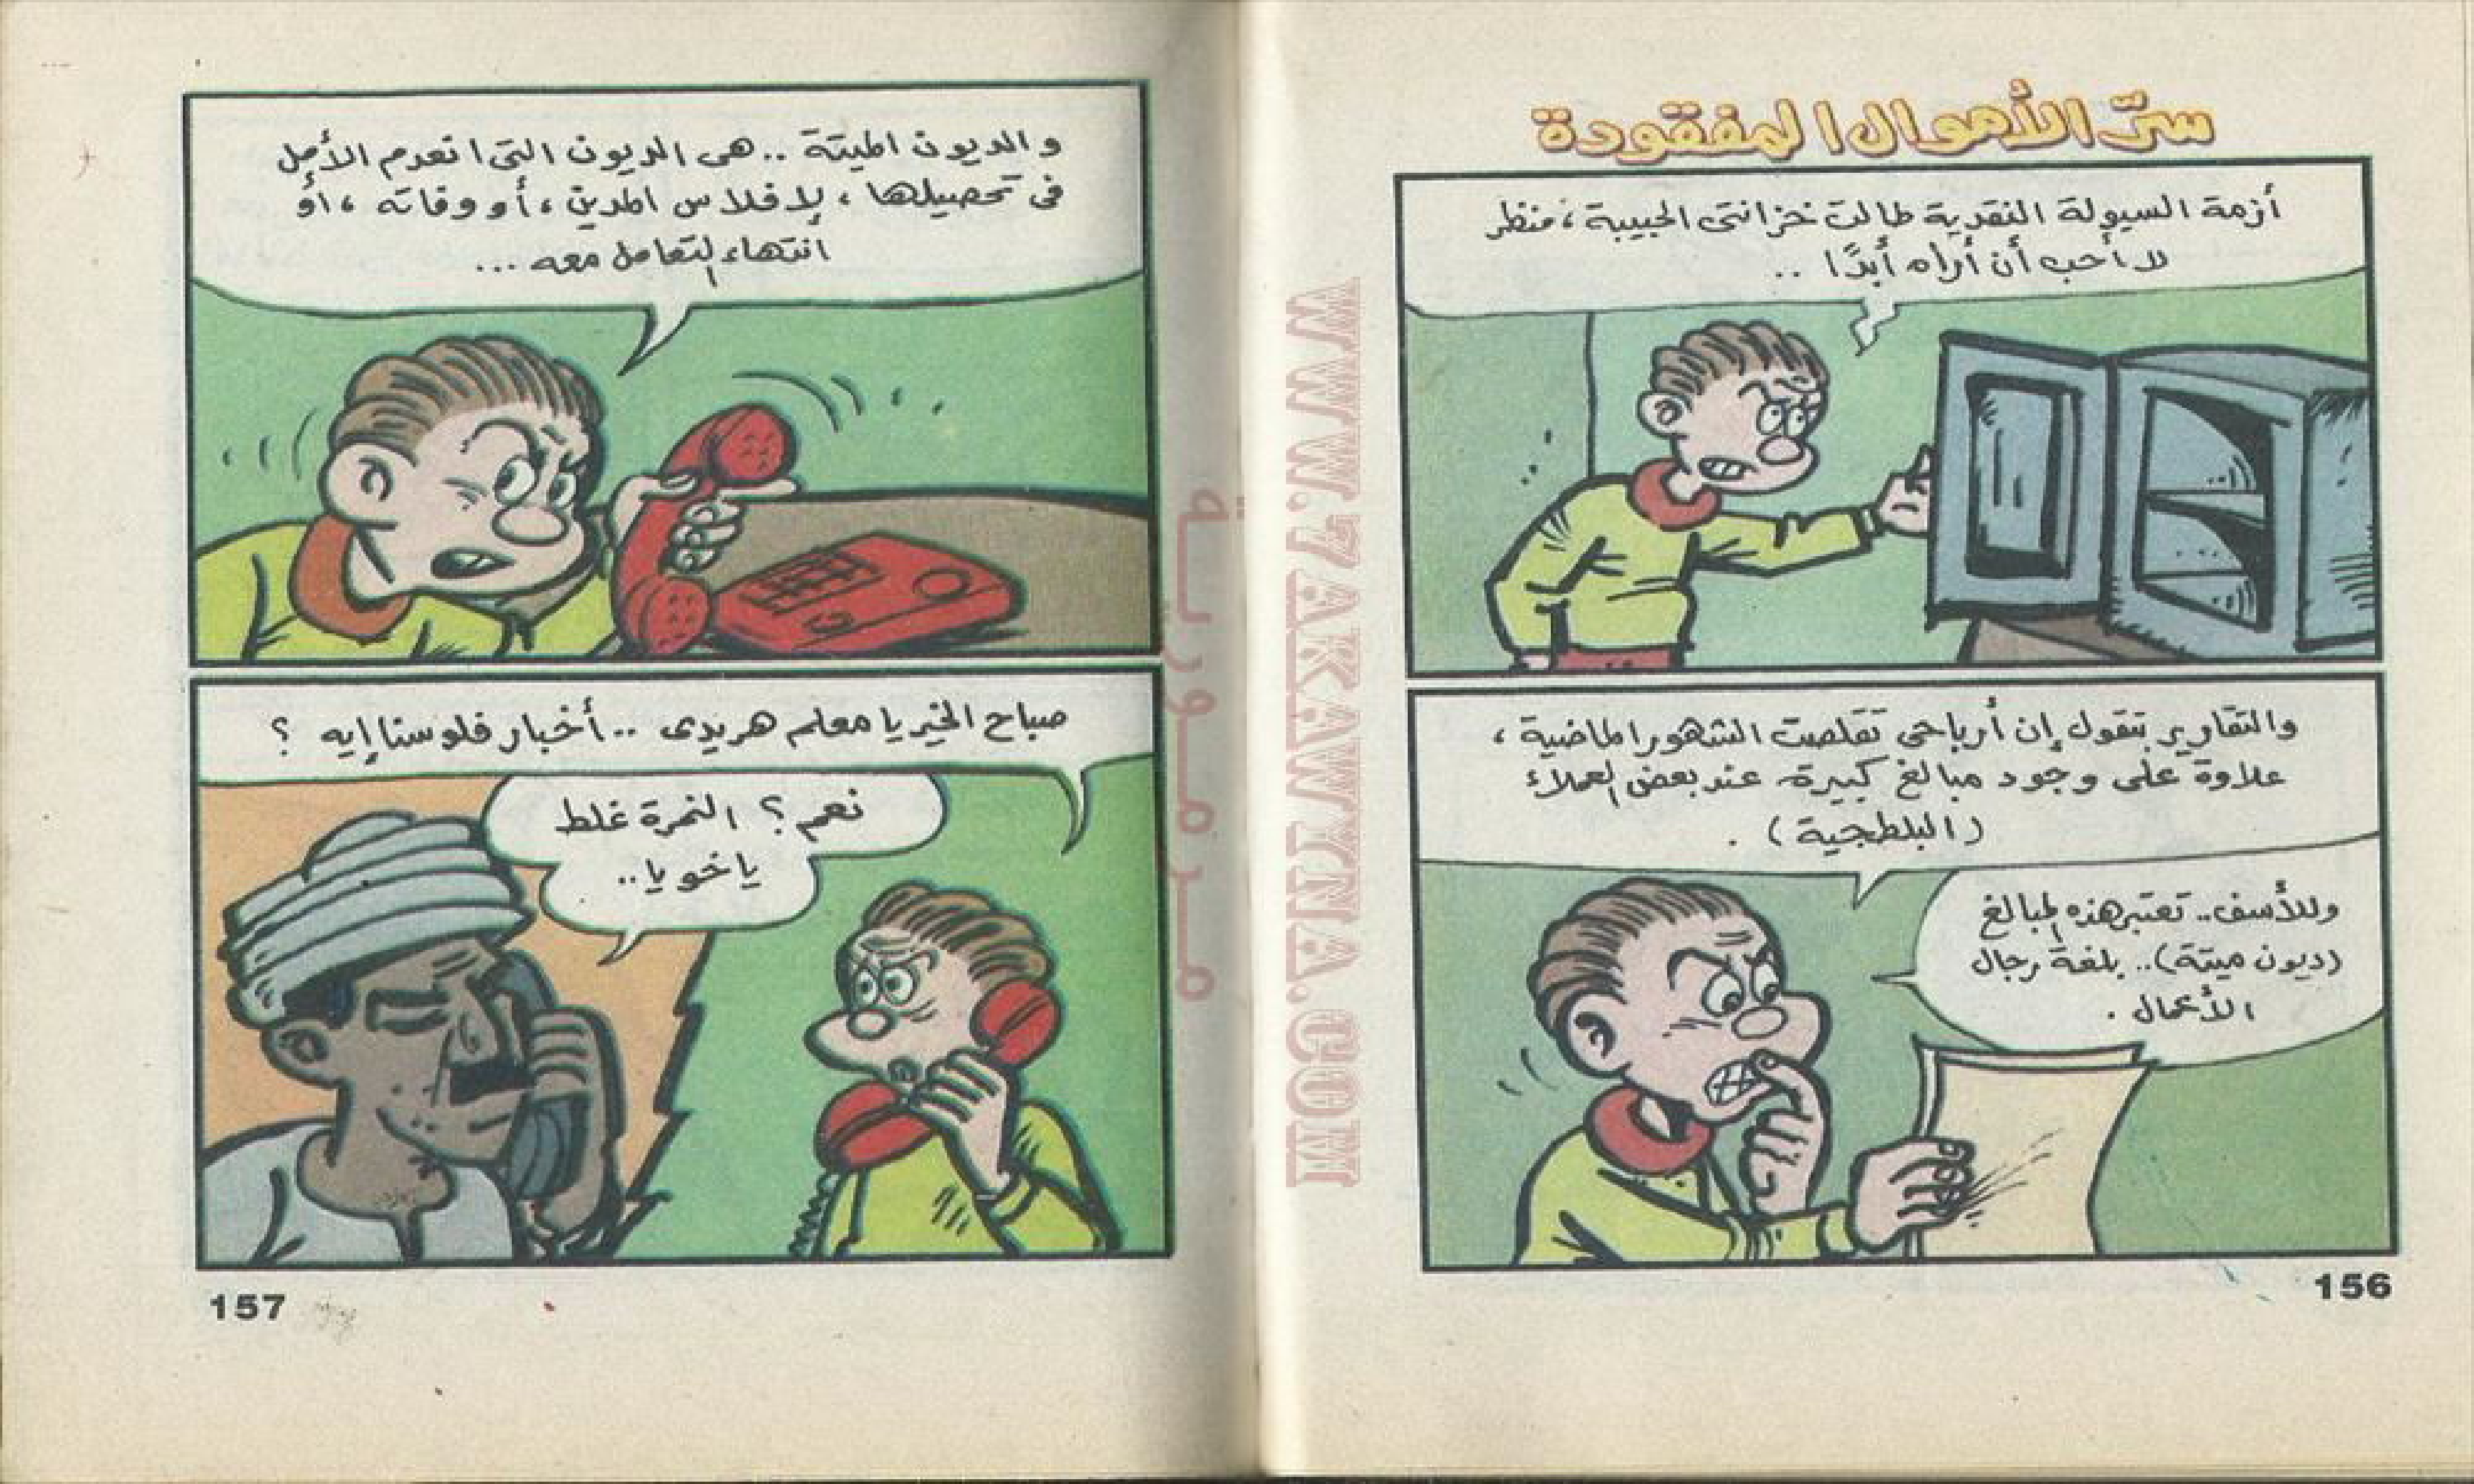 سرّ الأموال المفقودة
أزمة السيولة النقدية طالت خزانتى الحبيبة ، منظر
لا أحب أن أراه أبدًا ..
والتقارير بتقول إن أرباحى تقلصت الشهور الماضية ،
علاوة على وجود مبالغ كبيرة عند بعض العملاء
(البلطجية) .
وللأسف .. تعتبر هذه المبالغ
(ديون ميتة) .. بلغة رجال
الأعمال .
156
والديون الميتة .. هى الديون التى انعدم الأمل
فى تحصيلها ، لإفلاس المدين ، أو وفاته ، أو
انتهاء التعامل معه ...
صباح الخير يا معلم هريدى .. أخبار فلوسنا إيه ؟
نعم ؟ النمرة غلط
ياخويا ..
157
WWW.7AKAWAINA.COM
مرمورية